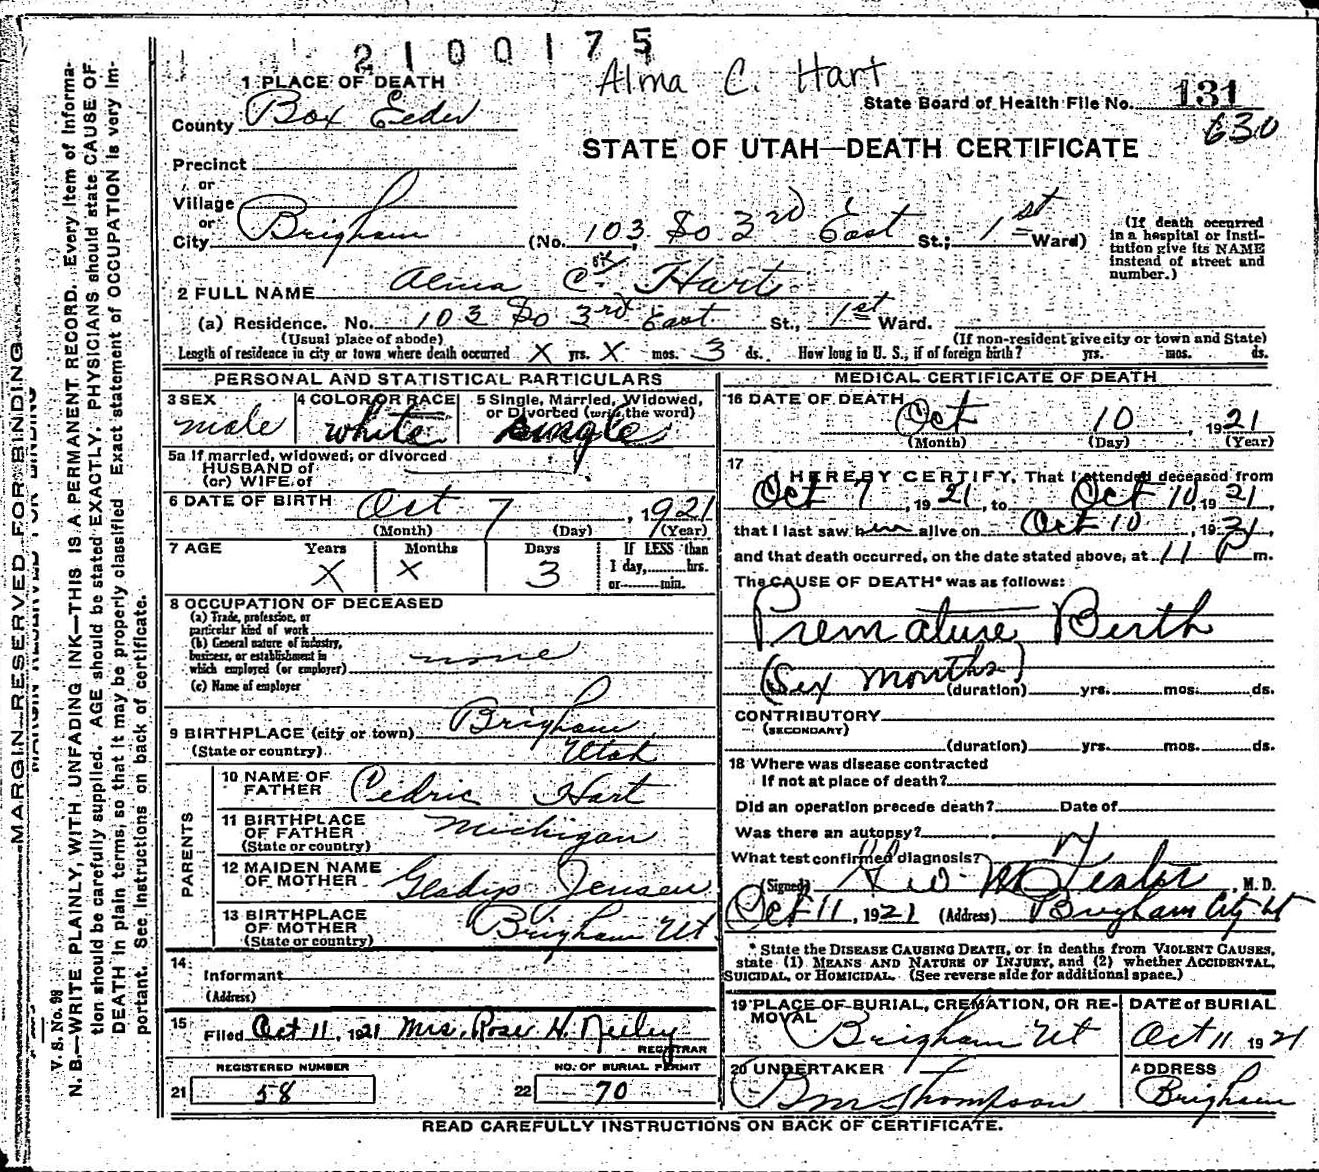 2100175
Alma C. Hart
1 PLACE OF DEATH
State Board of Health File No. 131
630
County Box Elder
STATE OF UTAH—DEATH CERTIFICATE
Precinct
or
Village
or
City Brigham (No. 103 So 3rd East St.; 1st Ward)
(If death occurred in a hospital or institution give its NAME instead of street and number.)
2 FULL NAME Alma C. Hart
(a) Residence. No. 103 So 3rd East St., 1st Ward.
(Usual place of abode) (If non-resident give city or town and State)
Length of residence in city or town where death occurred X yrs. X mos. 3 ds. How long in U. S., if of foreign birth? yrs. mos. ds.
PERSONAL AND STATISTICAL PARTICULARS
3 SEX male
4 COLOR OR RACE white
5 Single, Married, Widowed, or Divorced (write the word) single
5a If married, widowed, or divorced
HUSBAND of
(or) WIFE of
6 DATE OF BIRTH Oct 7, 1921
(Month) (Day) (Year)
7 AGE Years X Months X Days 3
If LESS than 1 day, hrs. or min.
8 OCCUPATION OF DECEASED
(a) Trade, profession, or particular kind of work
(b) General nature of industry, business, or establishment in which employed (or employer) none
(c) Name of employer
9 BIRTHPLACE (city or town) Brigham
(State or country) Utah
PARENTS
10 NAME OF FATHER Cedric Hart
11 BIRTHPLACE OF FATHER Michigan
(State or country)
12 MAIDEN NAME OF MOTHER Gladys Jensen
13 BIRTHPLACE OF MOTHER Brigham Ut.
(State or country)
14
Informant
(Address)
15
Filed Oct 11, 1921 Mrs. Rose H. Neeley
REGISTRAR
REGISTERED NUMBER
21 58
NO. OF BURIAL PERMIT
22 70
MEDICAL CERTIFICATE OF DEATH
16 DATE OF DEATH
Oct 10, 1921
(Month) (Day) (Year)
17
I HEREBY CERTIFY, That I attended deceased from
Oct 7, 1921, to Oct 10, 1921,
that I last saw him alive on Oct 10, 1921,
and that death occurred, on the date stated above, at 11 P m.
The CAUSE OF DEATH* was as follows:
Premature Birth
(Six months)
(duration) yrs. mos. ds.
CONTRIBUTORY
(SECONDARY)
(duration) yrs. mos. ds.
18 Where was disease contracted
If not at place of death?
Did an operation precede death? Date of
Was there an autopsy?
What test confirmed diagnosis?
(Signed) M. D.
Oct 11, 1921 (Address) Brigham City Ut
* State the DISEASE CAUSING DEATH, or in deaths from VIOLENT CAUSES,
state (1) MEANS AND NATURE OF INJURY, and (2) whether ACCIDENTAL,
SUICIDAL, or HOMICIDAL. (See reverse side for additional space.)
19 PLACE OF BURIAL, CREMATION, OR REMOVAL
Brigham Ut
DATE of BURIAL
Oct 11 1921
20 UNDERTAKER
Thompson
ADDRESS
Brigham
READ CAREFULLY INSTRUCTIONS ON BACK OF CERTIFICATE.
MARGIN RESERVED FOR BINDING
V. S. No. 98
N. B.—WRITE PLAINLY, WITH UNFADING INK—THIS IS A PERMANENT RECORD. Every item of informa-
tion should be carefully supplied. AGE should be stated EXACTLY. PHYSICIANS should state CAUSE OF
DEATH in plain terms, so that it may be properly classified. Exact statement of OCCUPATION is very im-
portant. See instructions on back of certificate.